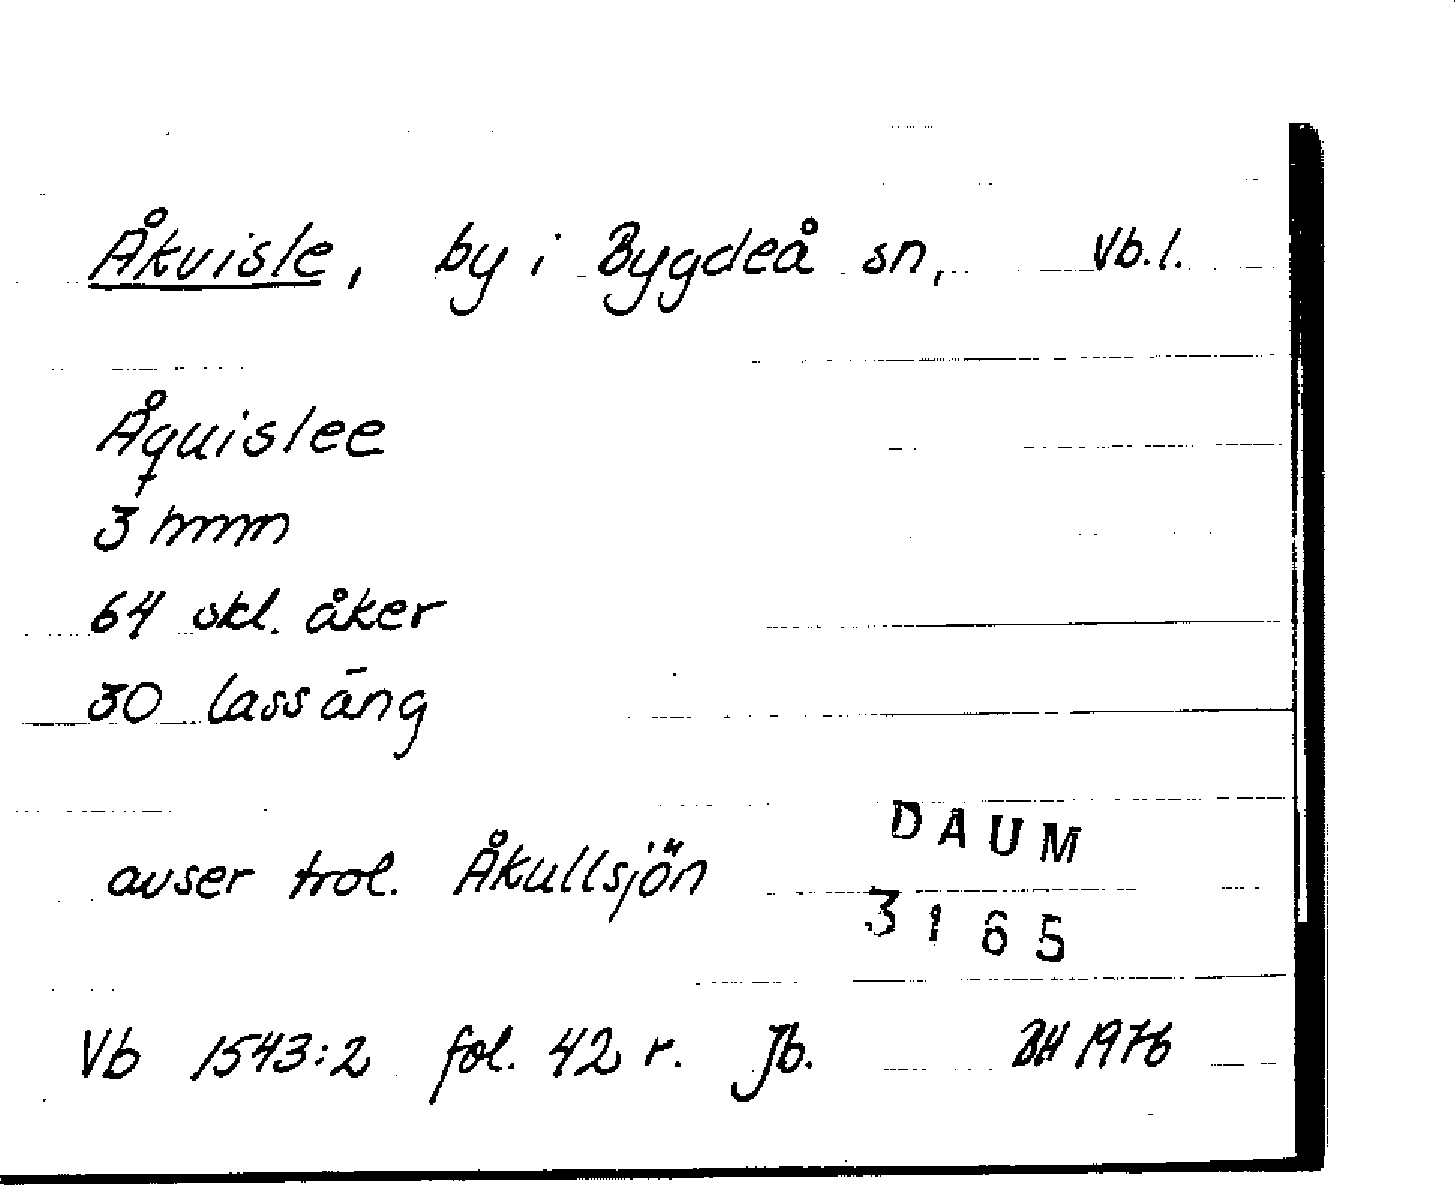 Åkvisle, by i Bygdeå sn, Vb.l.
Åquislee
3 hmn
64 skl. åker
30 lass äng
DAUM
avser trol. Åkullsjön
3165
Vb 1543:2 fol. 42 r. Jb. BH 1976